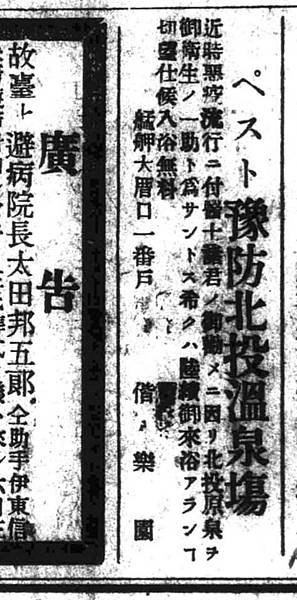 ペスト豫防北投溫泉塲
近時惡疫流行ニ付醫士諸君ノ御勸メニ因リ北投原泉ヲ
御衛生ノ一助ト爲サントス希クハ陸續御來浴アランヿ
切望仕候入浴無料
艋舺大厝口一番戶 偕樂園
廣告
故臺ト避病院長太田邦五郞仝助手伊東信